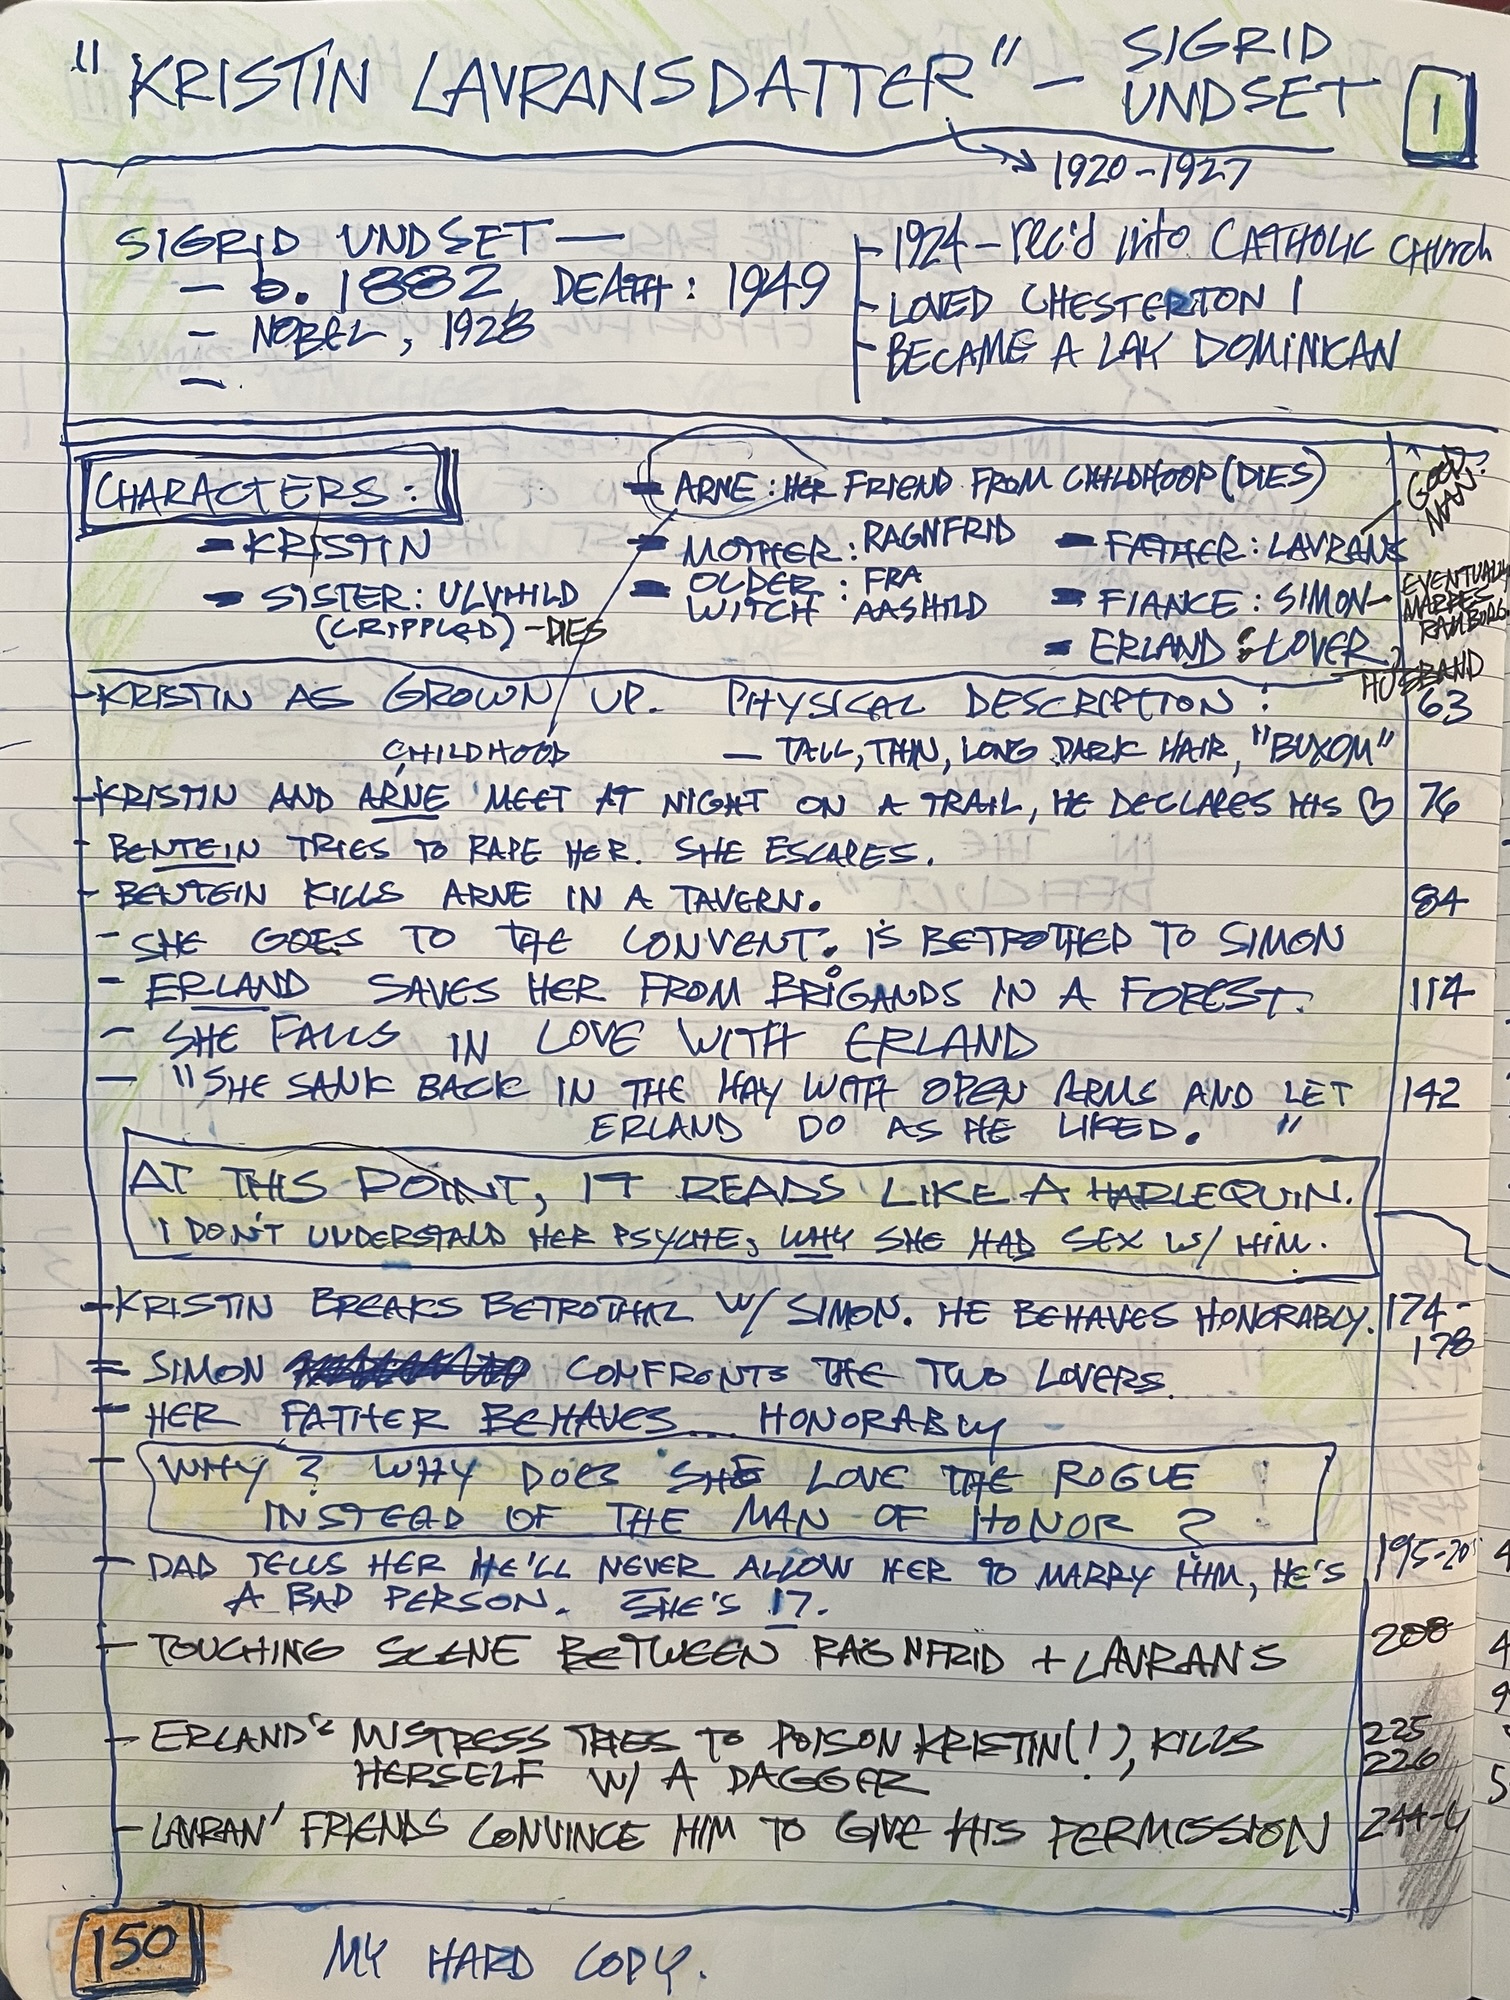 "KRISTIN LAVRANSDATTER" — SIGRID UNDSET
1
1920-1927
SIGRID UNDSET —
— b. 1882, DEATH: 1949
— NOBEL, 1928
—
- 1924 - rec'd into CATHOLIC CHURCH
- LOVED CHESTERTON!
- BECAME A LAY DOMINICAN
CHARACTERS:
- ARNE: HER FRIEND FROM CHILDHOOD (DIES)
GOOD MAN
- KRISTIN
- MOTHER: RAGNFRID
- FATHER: LAVRANS
- SISTER: ULVHILD
(CRIPPLED) - DIES
- OLDER WITCH: FRA AASHILD
- FIANCE: SIMON -
EVENTUALLY MARRIES RAMBORG
- ERLAND: LOVER,
HUSBAND
- KRISTIN AS GROWN UP. PHYSICAL DESCRIPTION: 63
CHILDHOOD
— TALL, THIN, LONG DARK HAIR, "BUXOM"
- KRISTIN AND ARNE MEET AT NIGHT ON A TRAIL, HE DECLARES HIS ♡ 76
- BENTEIN TRIES TO RAPE HER. SHE ESCAPES.
- BENTEIN KILLS ARNE IN A TAVERN. 84
- SHE GOES TO THE CONVENT. IS BETROTHED TO SIMON
- ERLAND SAVES HER FROM BRIGANDS IN A FOREST. 114
- SHE FALLS IN LOVE WITH ERLAND
— "SHE SANK BACK IN THE HAY WITH OPEN ARMS AND LET 142
ERLAND DO AS HE LIKED. "
AT THIS POINT, IT READS LIKE A HARLEQUIN.
I DON'T UNDERSTAND HER PSYCHE, WHY SHE HAD SEX W/ HIM.
- KRISTIN BREAKS BETROTHAL W/ SIMON. HE BEHAVES HONORABLY. 174-
178
= SIMON CONFRONTS THE TWO LOVERS.
= HER FATHER BEHAVES... HONORABLY
— WHY? WHY DOES SHE LOVE THE ROGUE
INSTEAD OF THE MAN OF HONOR?
- DAD TELLS HER HE'LL NEVER ALLOW HER TO MARRY HIM, HE'S
A BAD PERSON. SHE'S 17.
- TOUCHING SCENE BETWEEN RAGNFRID + LAVRANS 208
- ERLAND'S MISTRESS TRIES TO POISON KRISTIN(!), KILLS 225
HERSELF W/ A DAGGER 226
- LAVRAN' FRIENDS CONVINCE HIM TO GIVE HIS PERMISSION
150
MY HARD COPY.